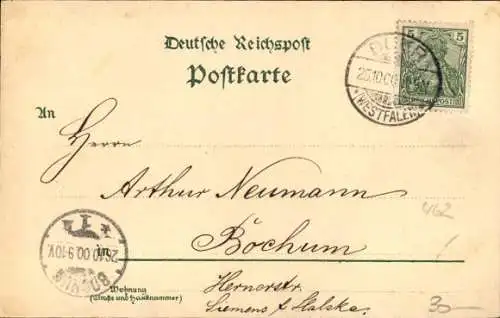 Deutsche Reichspost
Postkarte
5 5
25.10.00
(WESTFALEN)
An
Herrn
Arthur Neumann
462
in
Bochum
26.10.00.9-10V.
BOCHUM
Wohnung
(Straße und Hausnummer)
Hernerstr.
Siemens & Halske.
30-